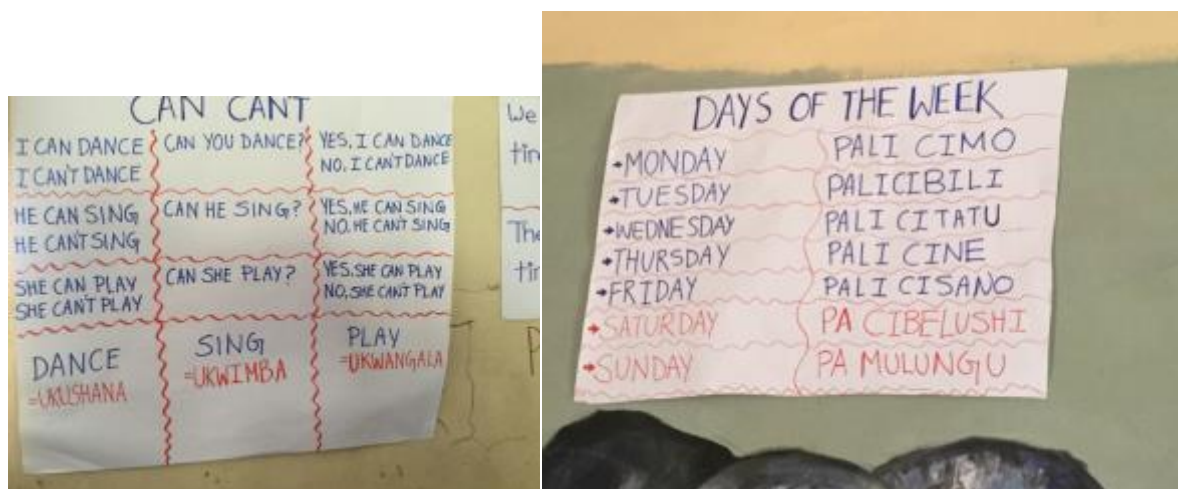 CAN CANT
I CAN DANCE
I CAN'T DANCE
CAN YOU DANCE?
YES, I CAN DANCE
NO, I CAN'T DANCE
HE CAN SING
HE CAN'T SING
CAN HE SING?
YES, HE CAN SING
NO, HE CAN'T SING
SHE CAN PLAY
SHE CAN'T PLAY
CAN SHE PLAY?
YES, SHE CAN PLAY
NO, SHE CAN'T PLAY
DANCE
=UKUSHANA
SING
=UKWIMBA
PLAY
=UKWANGALA
We
tin
The
tin
DAYS OF THE WEEK
→MONDAY PALI CIMO
→TUESDAY PALICIBILI
→WEDNESDAY PALI CITATU
→THURSDAY PALI CINE
→FRIDAY PALI CISANO
→SATURDAY PA CIBELUSHI
→SUNDAY PA MULUNGU